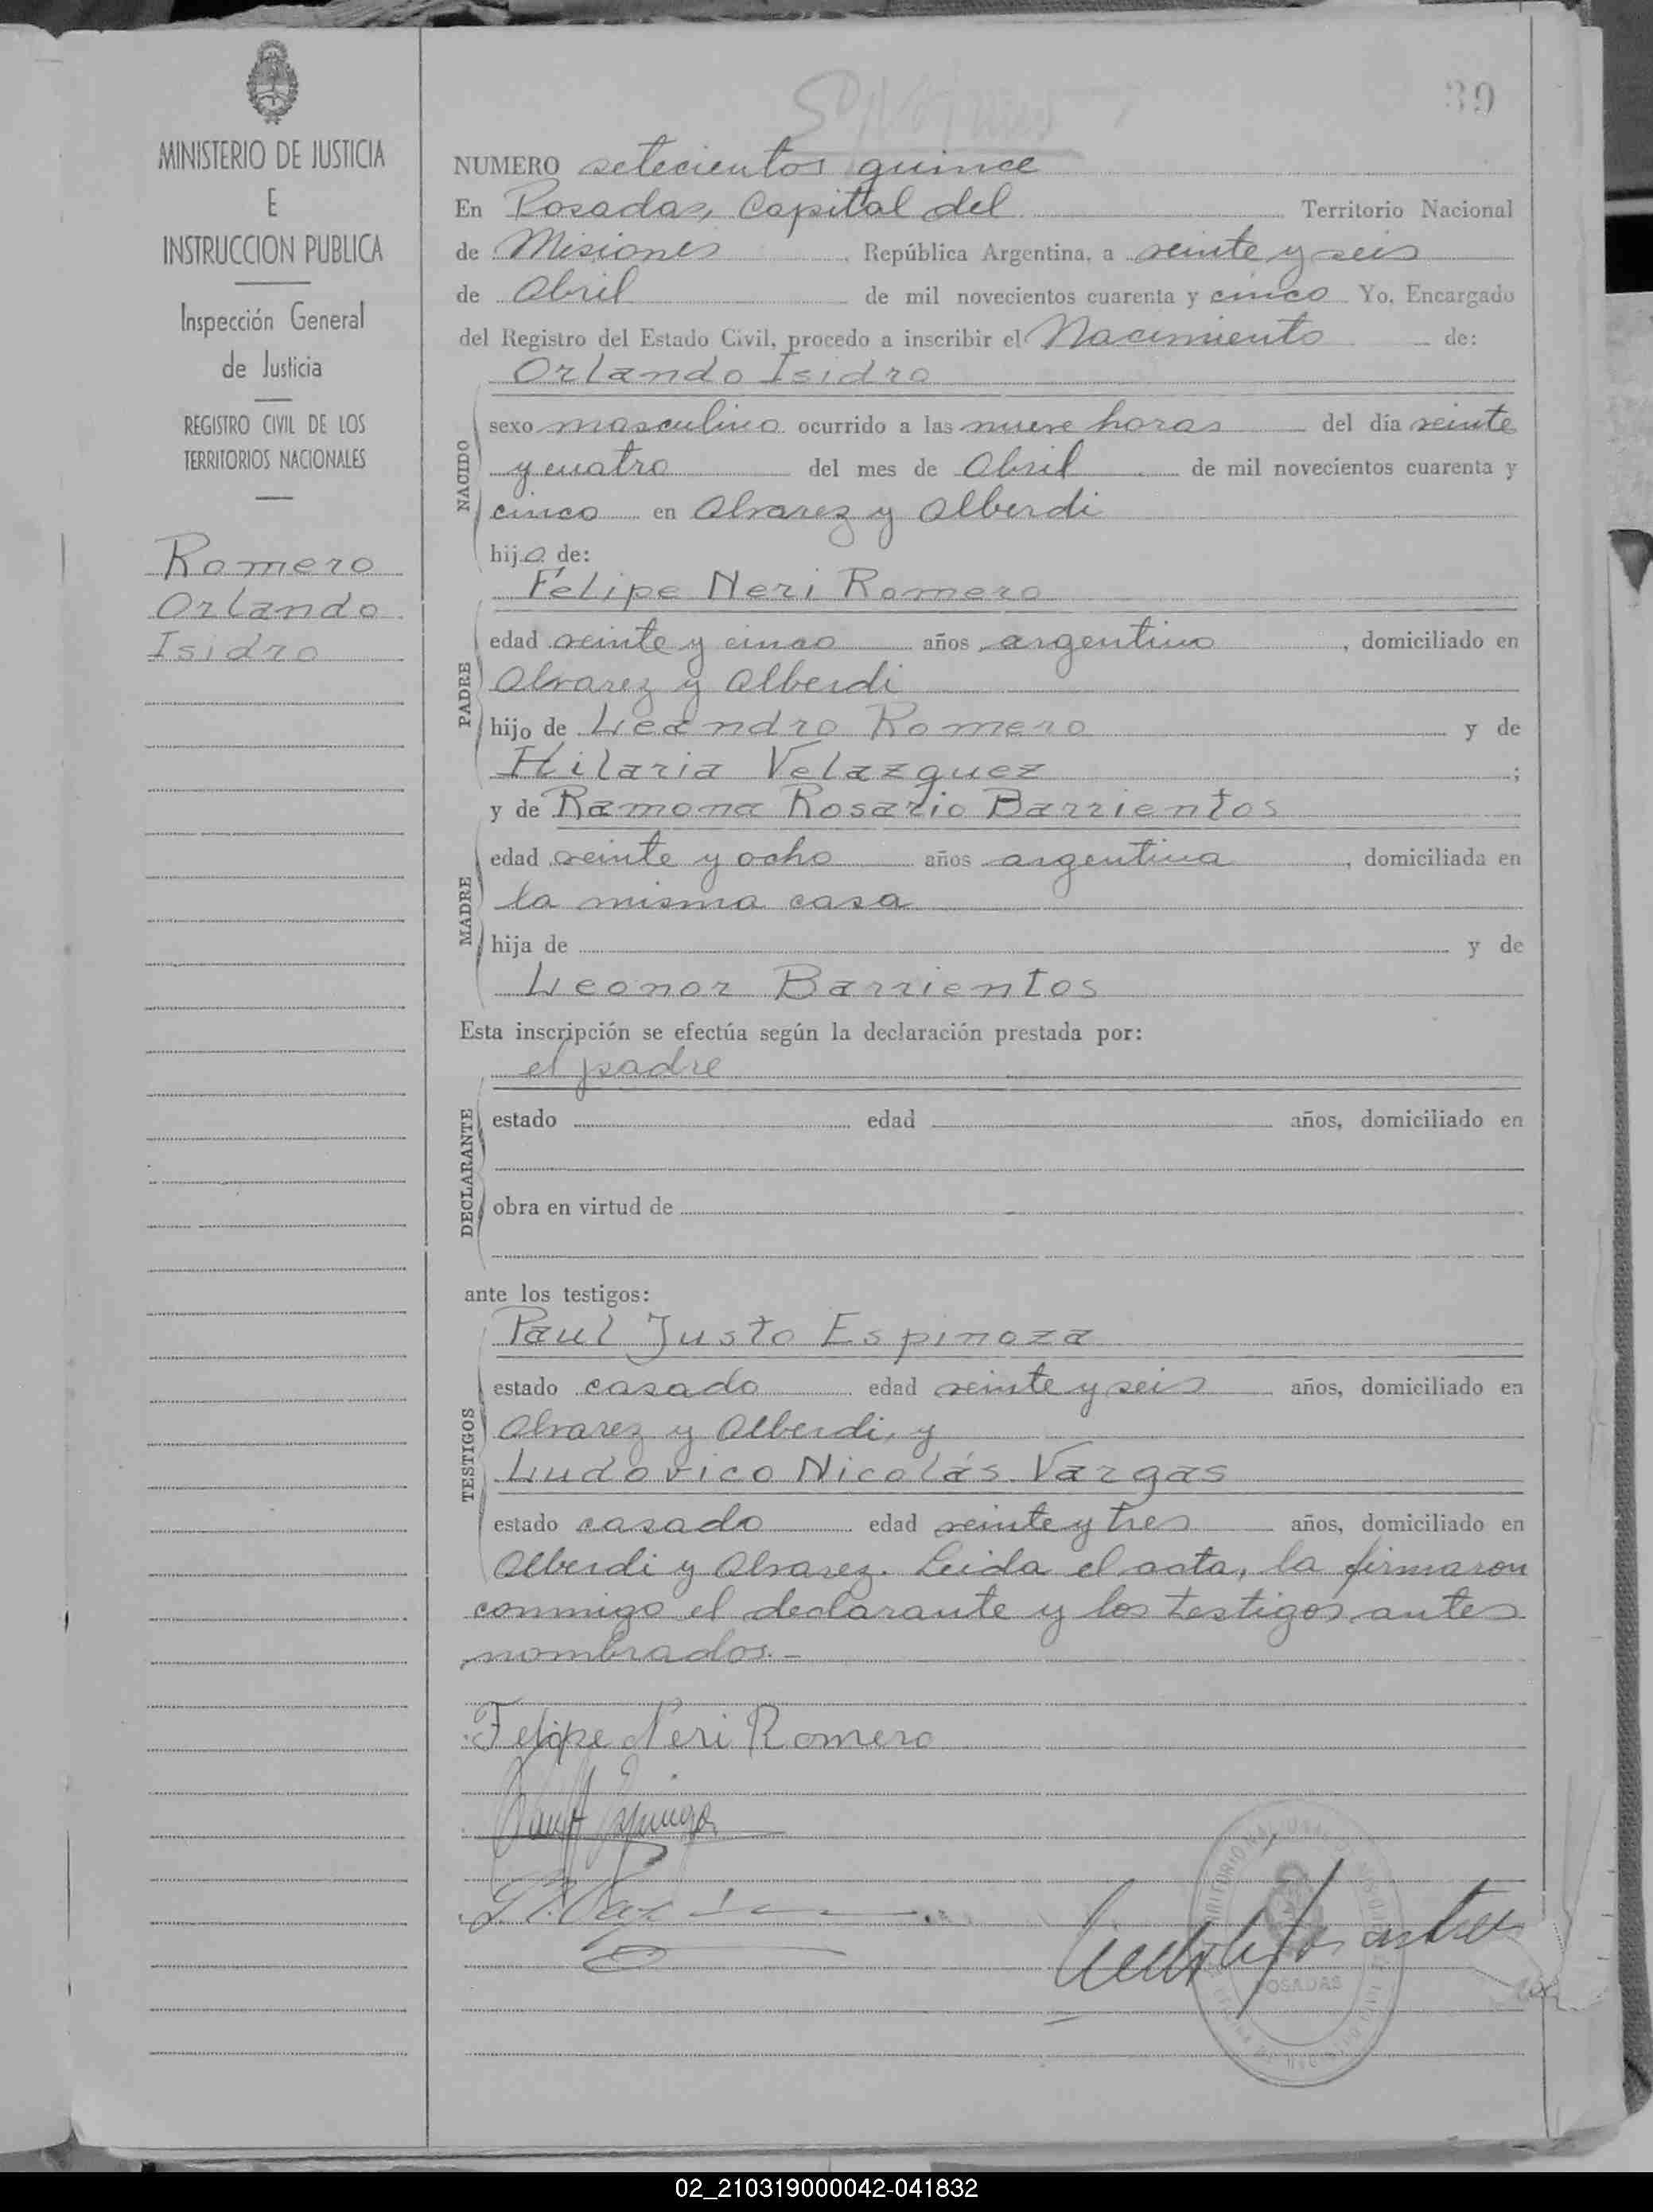 39
MINISTERIO DE JUSTICIA
E
INSTRUCCION PUBLICA
Inspección General
de Justicia
REGISTRO CIVIL DE LOS
TERRITORIOS NACIONALES
Romero
Orlando
Isidro
NUMERO setecientos quince
En Posadas, Capital del Territorio Nacional
de Misiones, República Argentina, a veinte y seis
de Abril de mil novecientos cuarenta y cinco Yo, Encargado
del Registro del Estado Civil, procedo a inscribir el Nacimiento de:
Orlando Isidro
NACIDO
sexo masculino ocurrido a las nueve horas del día veinte
y cuatro del mes de Abril de mil novecientos cuarenta y
cinco en Alvarez y Alberdi
hijo de:
Felipe Neri Romero
PADRE
edad veinte y cinco años argentino, domiciliado en
Alvarez y Alberdi
hijo de Leandro Romero y de
Hilaria Velazquez;
y de Ramona Rosario Barrientos
MADRE
edad veinte y ocho años argentina, domiciliada en
la misma casa
hija de y de
Leonor Barrientos
Esta inscripción se efectúa según la declaración prestada por:
el padre
DECLARANTE
estado edad años, domiciliado en
obra en virtud de
ante los testigos:
Paul Justo Espinoza
TESTIGOS
estado casado edad veinte y seis años, domiciliado en
Alvarez y Alberdi, y
Ludovico Nicolás Vargas
estado casado edad veinte y tres años, domiciliado en
Alberdi y Alvarez. Leida el acta, la firmaron
conmigo el declarante y los testigos antes
nombrados.-
Felipe Neri Romero
POSADAS
02_210319000042-041832